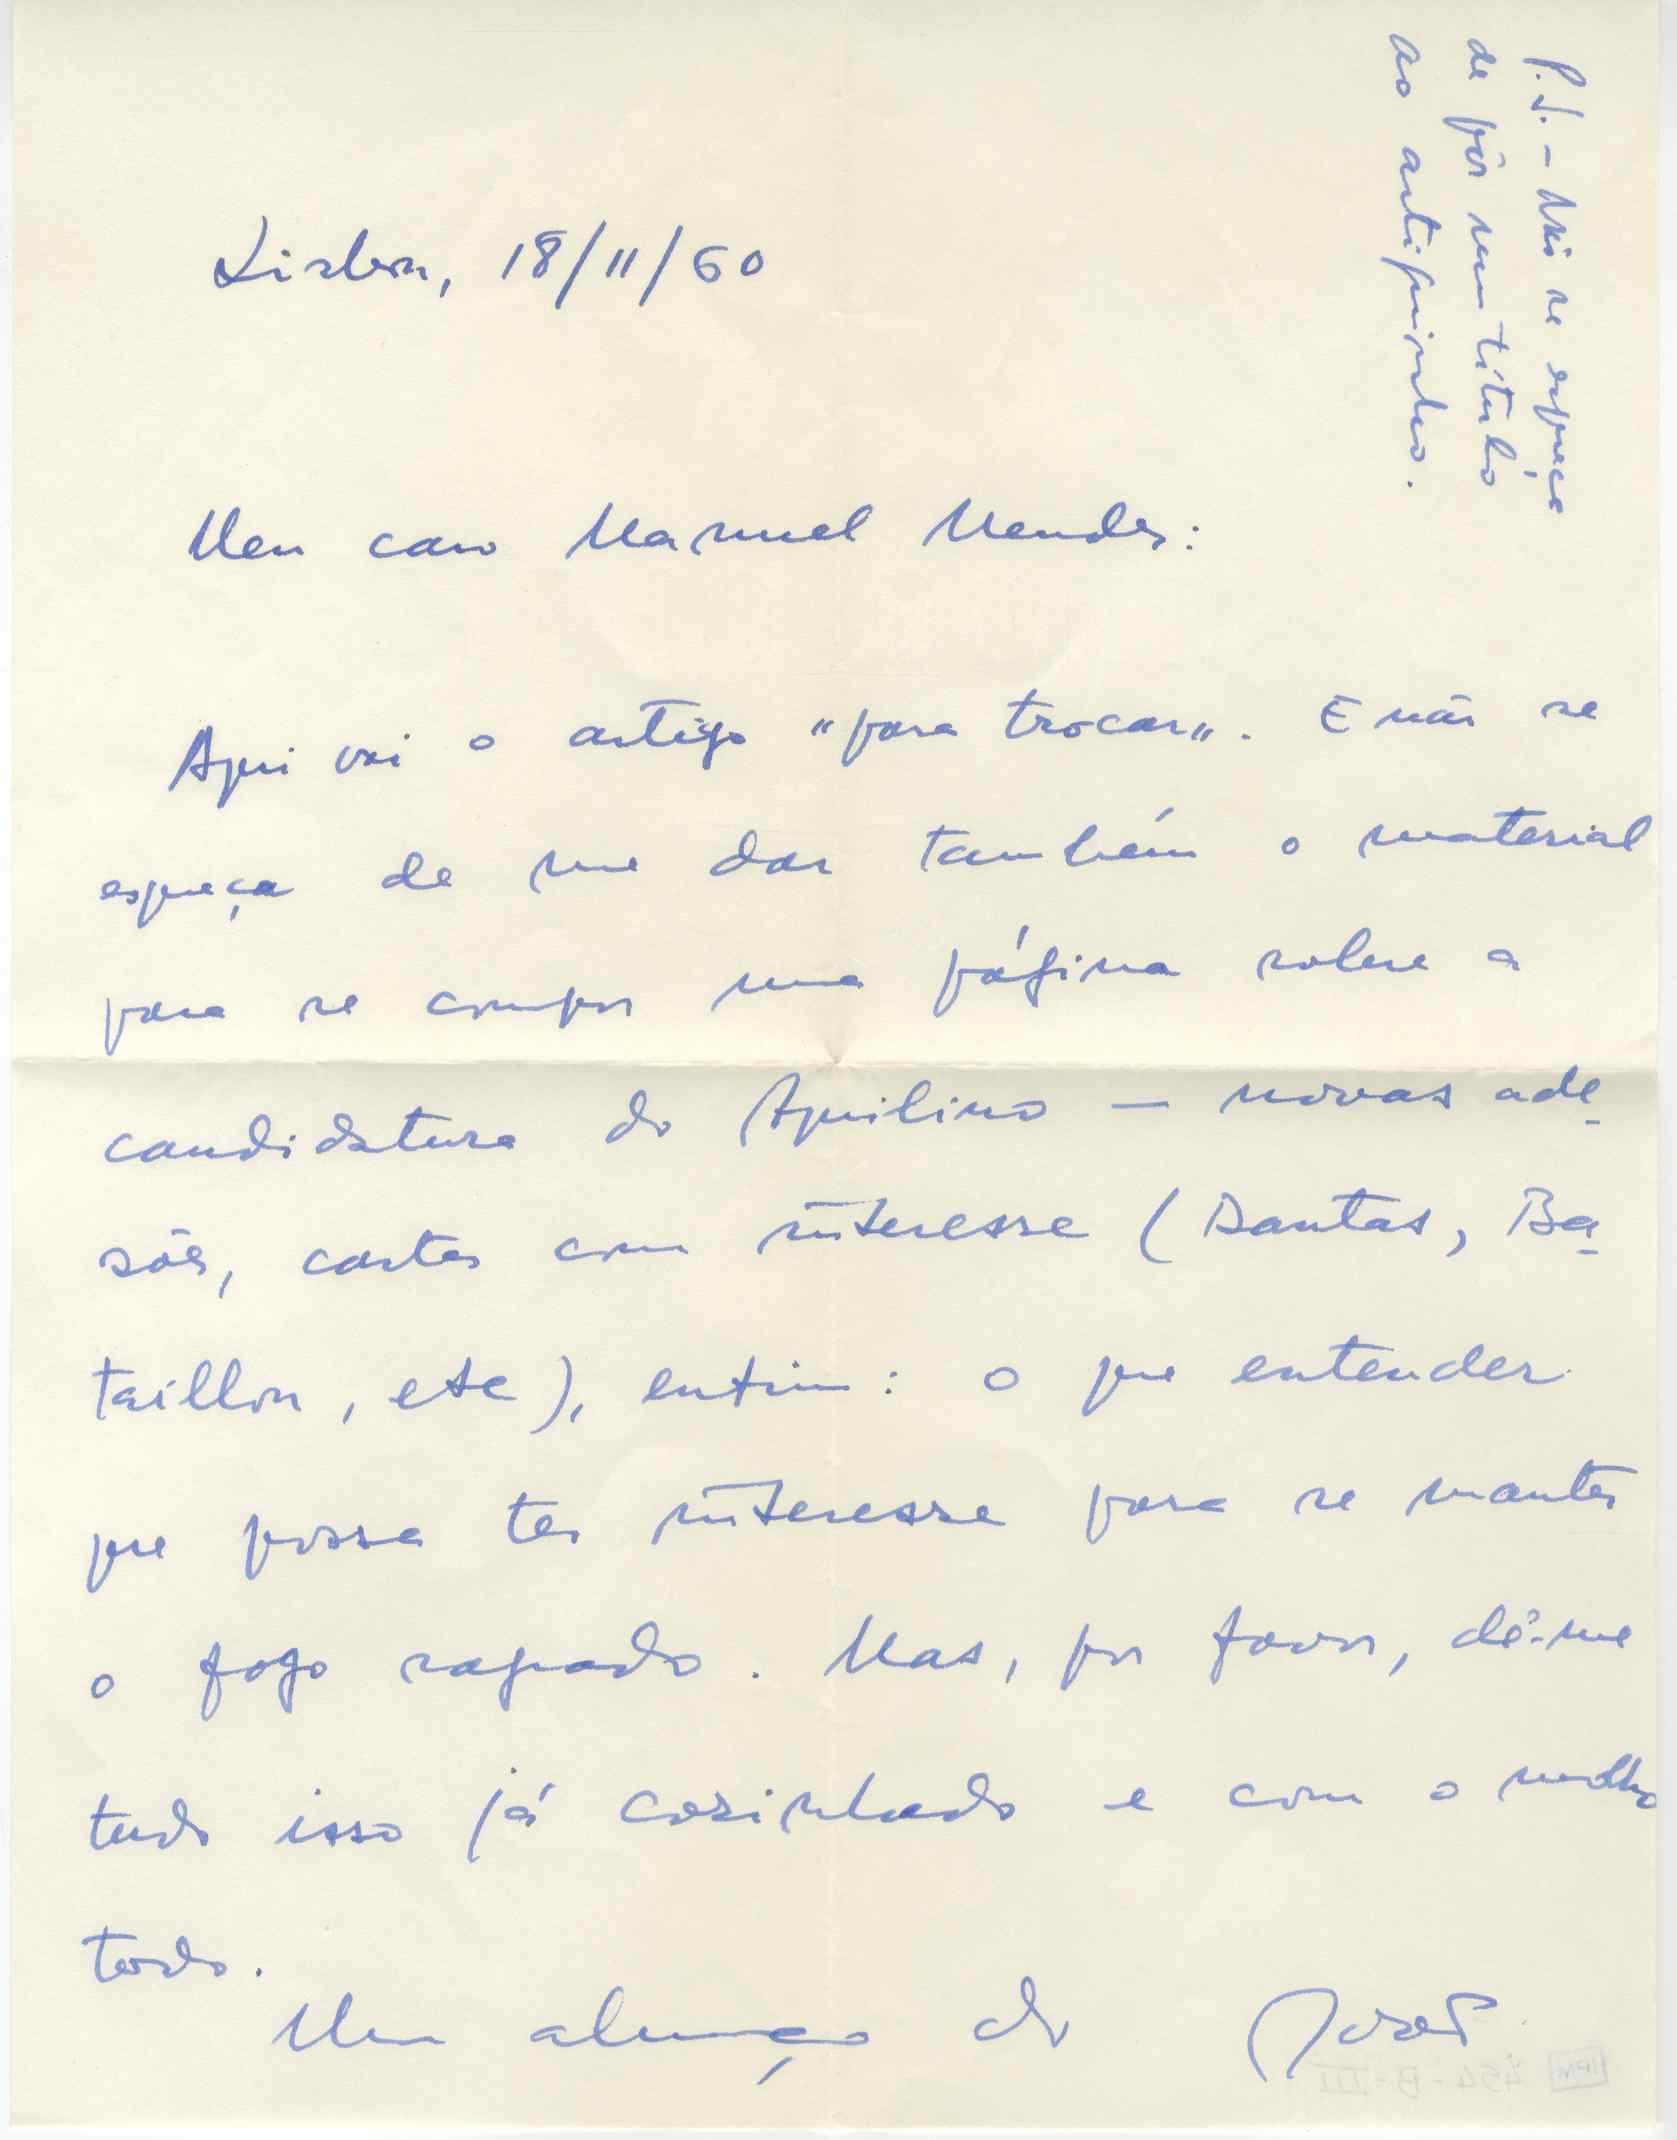 Lisboa, 18/11/60
Meu caro Manuel Mendes:
Aqui vai o artigo "para trocar". E não se
esqueça de me dar também o material
para se compor uma página sobre a
candidatura do Aquilino — novas ade-
sões, cartas com interesse (Dantas, Ba-
taillon, etc), enfim: o que entender
que possa ter interesse para se manter
o fogo sagrado. Mas, por favor, dê-me
tudo isso já cozinhado e com o molho
todo.
Um abraço do José
P.S. - Não se esqueça
de pôr um título
ao artiguinho.
454-B-III